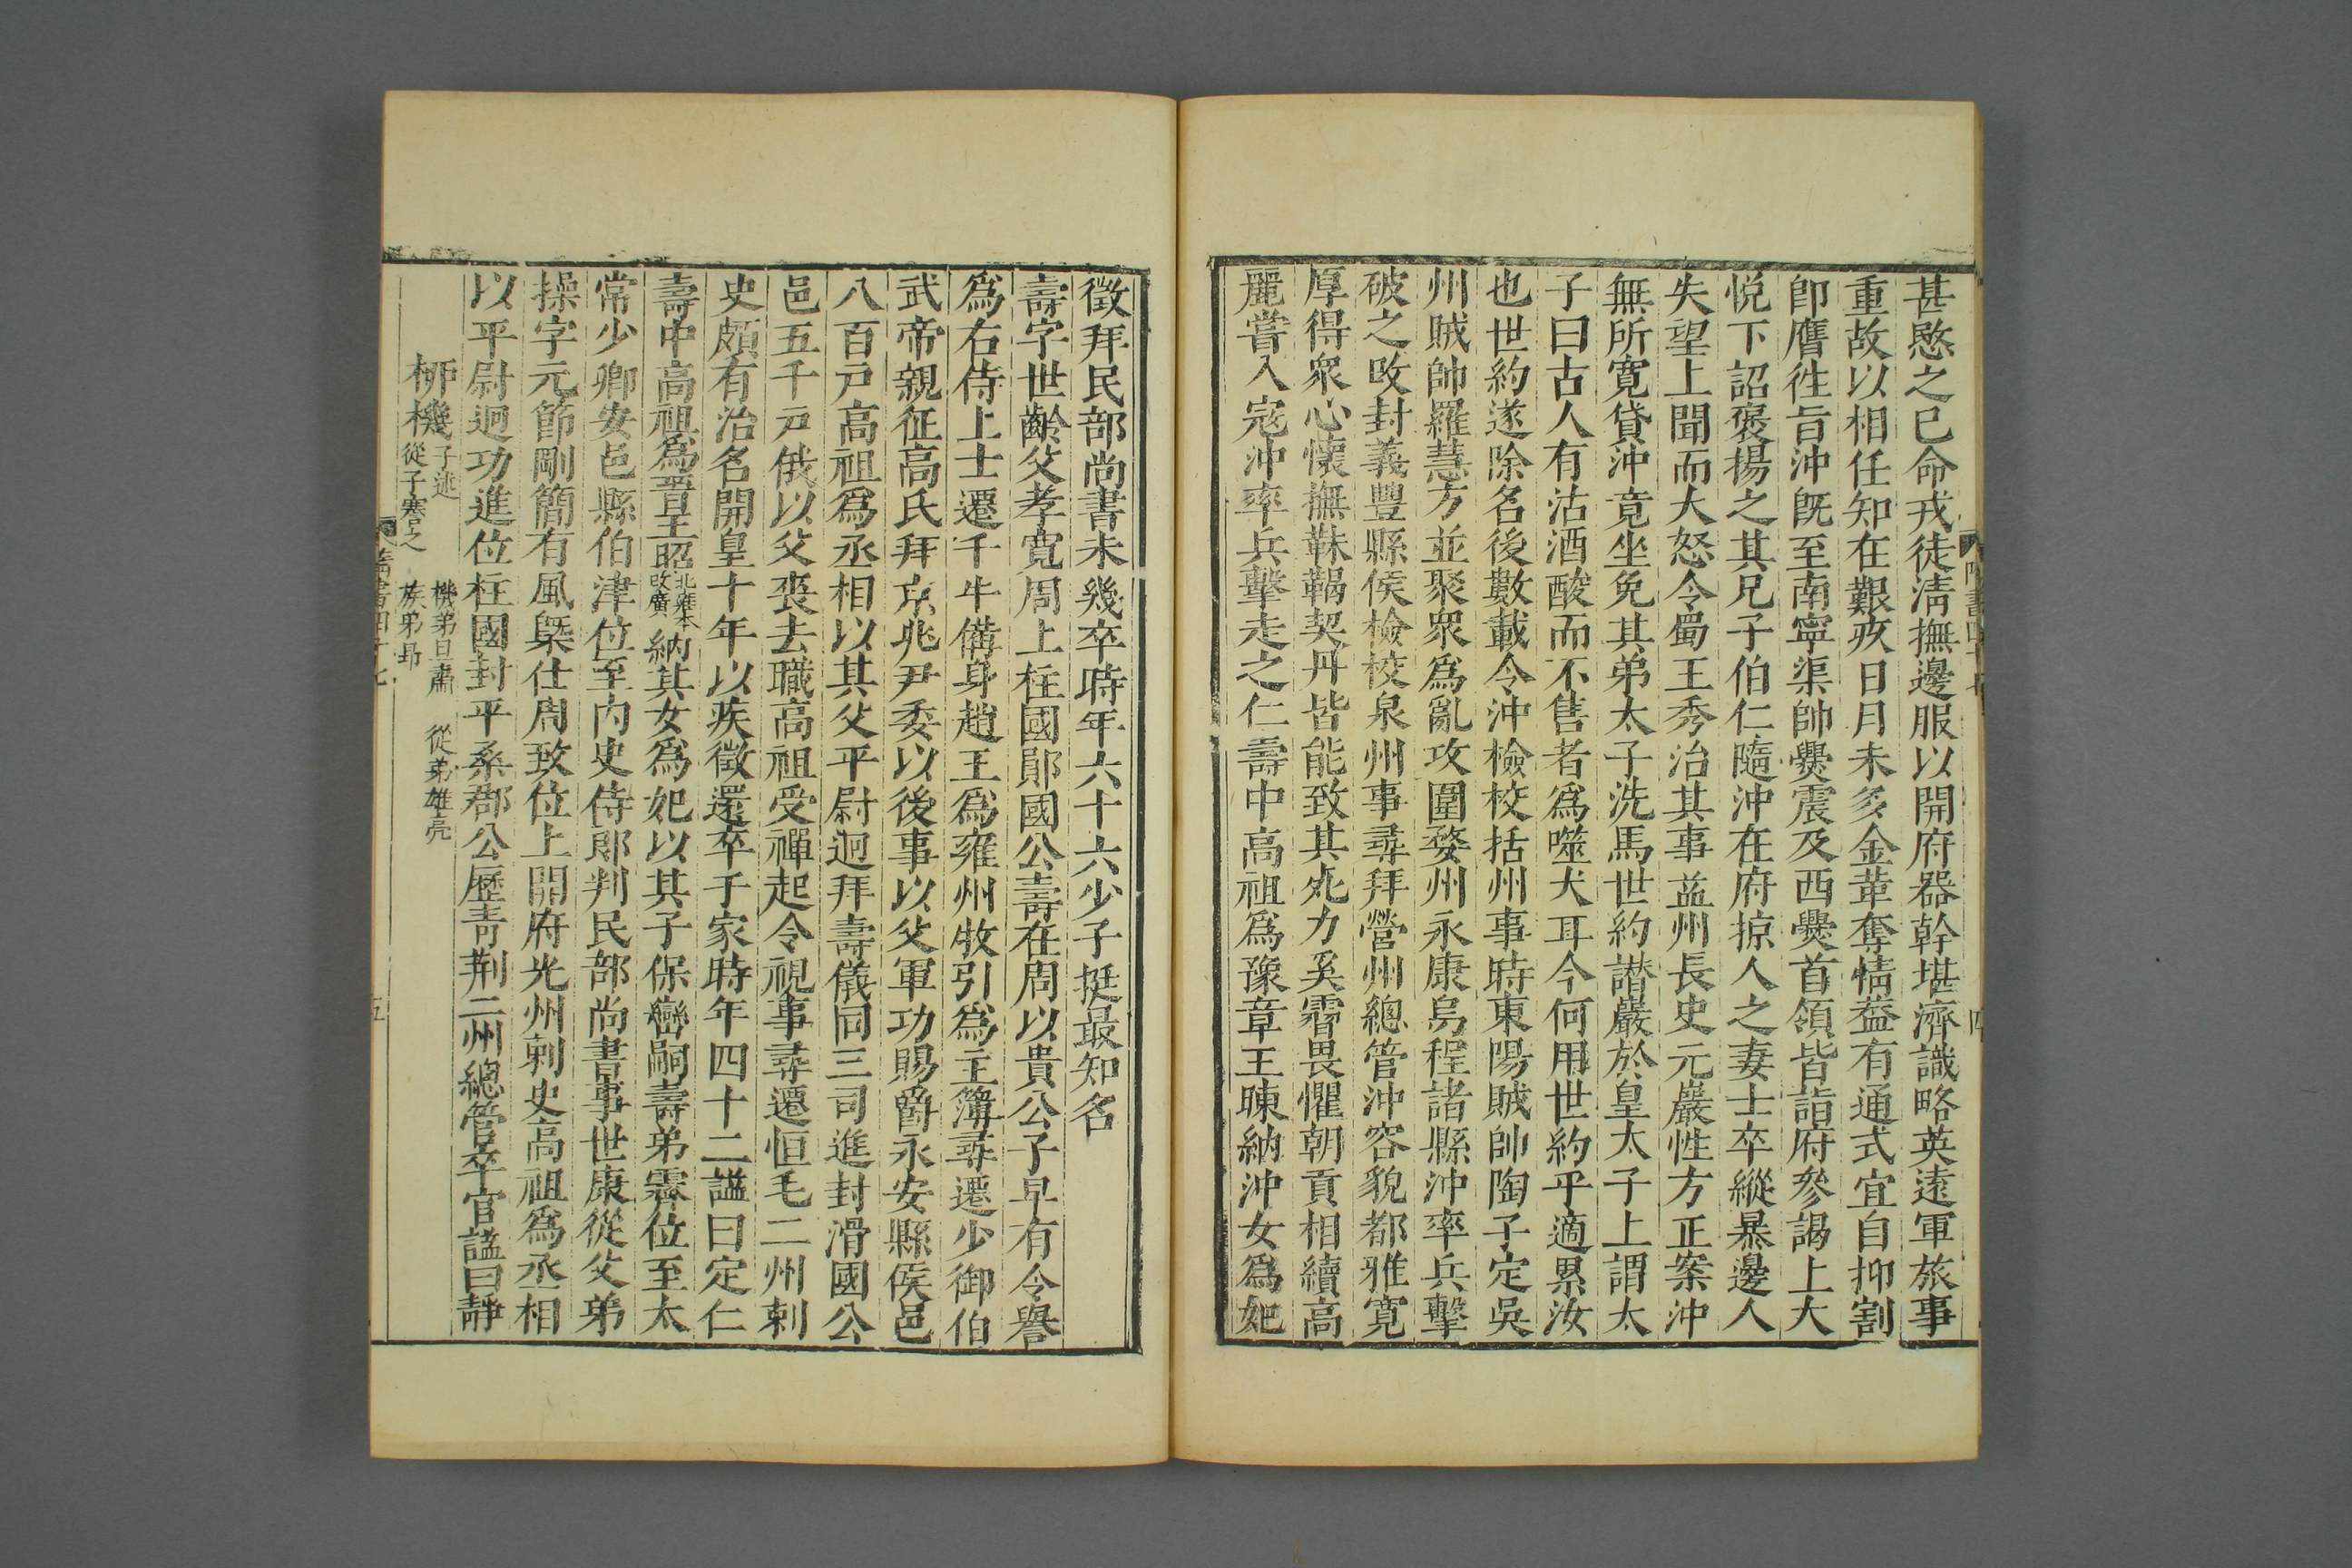 甚愍之已命戎徒清撫邊服以開府器幹堪濟識略英遠軍旅事
重故以相任知在艱疚日月未多金革奪情葢有通式宜自抑割
卽膺徃旨沖旣至南寧渠帥爨震及西爨首領皆詣府參謁上大
悅下詔褒揚之其兄子伯仁隨沖在府掠人之妻士卒縱暴邊人
失望上聞而大怒令蜀王秀治其事益州長史元巖性方正案沖
無所寬貸沖竟坐免其弟太子洗馬世約譖巖於皇太子上謂太
子曰古人有沽酒酸而不售者爲噬犬耳今何用世約乎適累汝
也世約遂除名後數載令沖檢校括州事時東陽賊帥陶子定吳
州賊帥羅慧方並聚衆爲亂攻圍婺州永康烏程諸縣沖率兵擊
破之改封義豐縣侯檢校泉州事尋拜營州總管沖容貌都雅寬
厚得衆心懷撫靺鞨契丹皆能致其死力奚霫畏懼朝貢相續高
麗嘗入寇沖率兵擊走之仁壽中高祖爲豫章王暕納沖女爲妃
徵拜民部尚書未幾卒時年六十六少子挺最知名
壽字世齡父孝寬周上柱國鄖國公壽在周以貴公子早有令譽
爲右侍上士遷千牛備身趙王爲雍州牧引爲主簿尋遷少御伯
武帝親征高氏拜京兆尹委以後事以父軍功賜爵永安縣侯邑
八百戸高祖爲丞相以其父平尉迥拜壽儀同三司進封滑國公
邑五千戸俄以父喪去職高祖受禪起令視事尋遷恒毛二州刺
史頗有治名開皇十年以疾徵還卒于家時年四十二諡曰定仁
壽中高祖爲晉王昭北雍本改廣納其女爲妃以其子保巒嗣壽弟霽位至太
常少卿安邑縣伯津位至内史侍郎判民部尚書事世康從父弟
操字元節剛簡有風槩仕周致位上開府光州刺史高祖爲丞相
以平尉迥功進位柱國封平桑郡公歷青荆二州總管卒官諡曰靜
柳機子述 機弟旦肅 從弟雄亮 從子謇之 族弟昂
隋書四十七 五